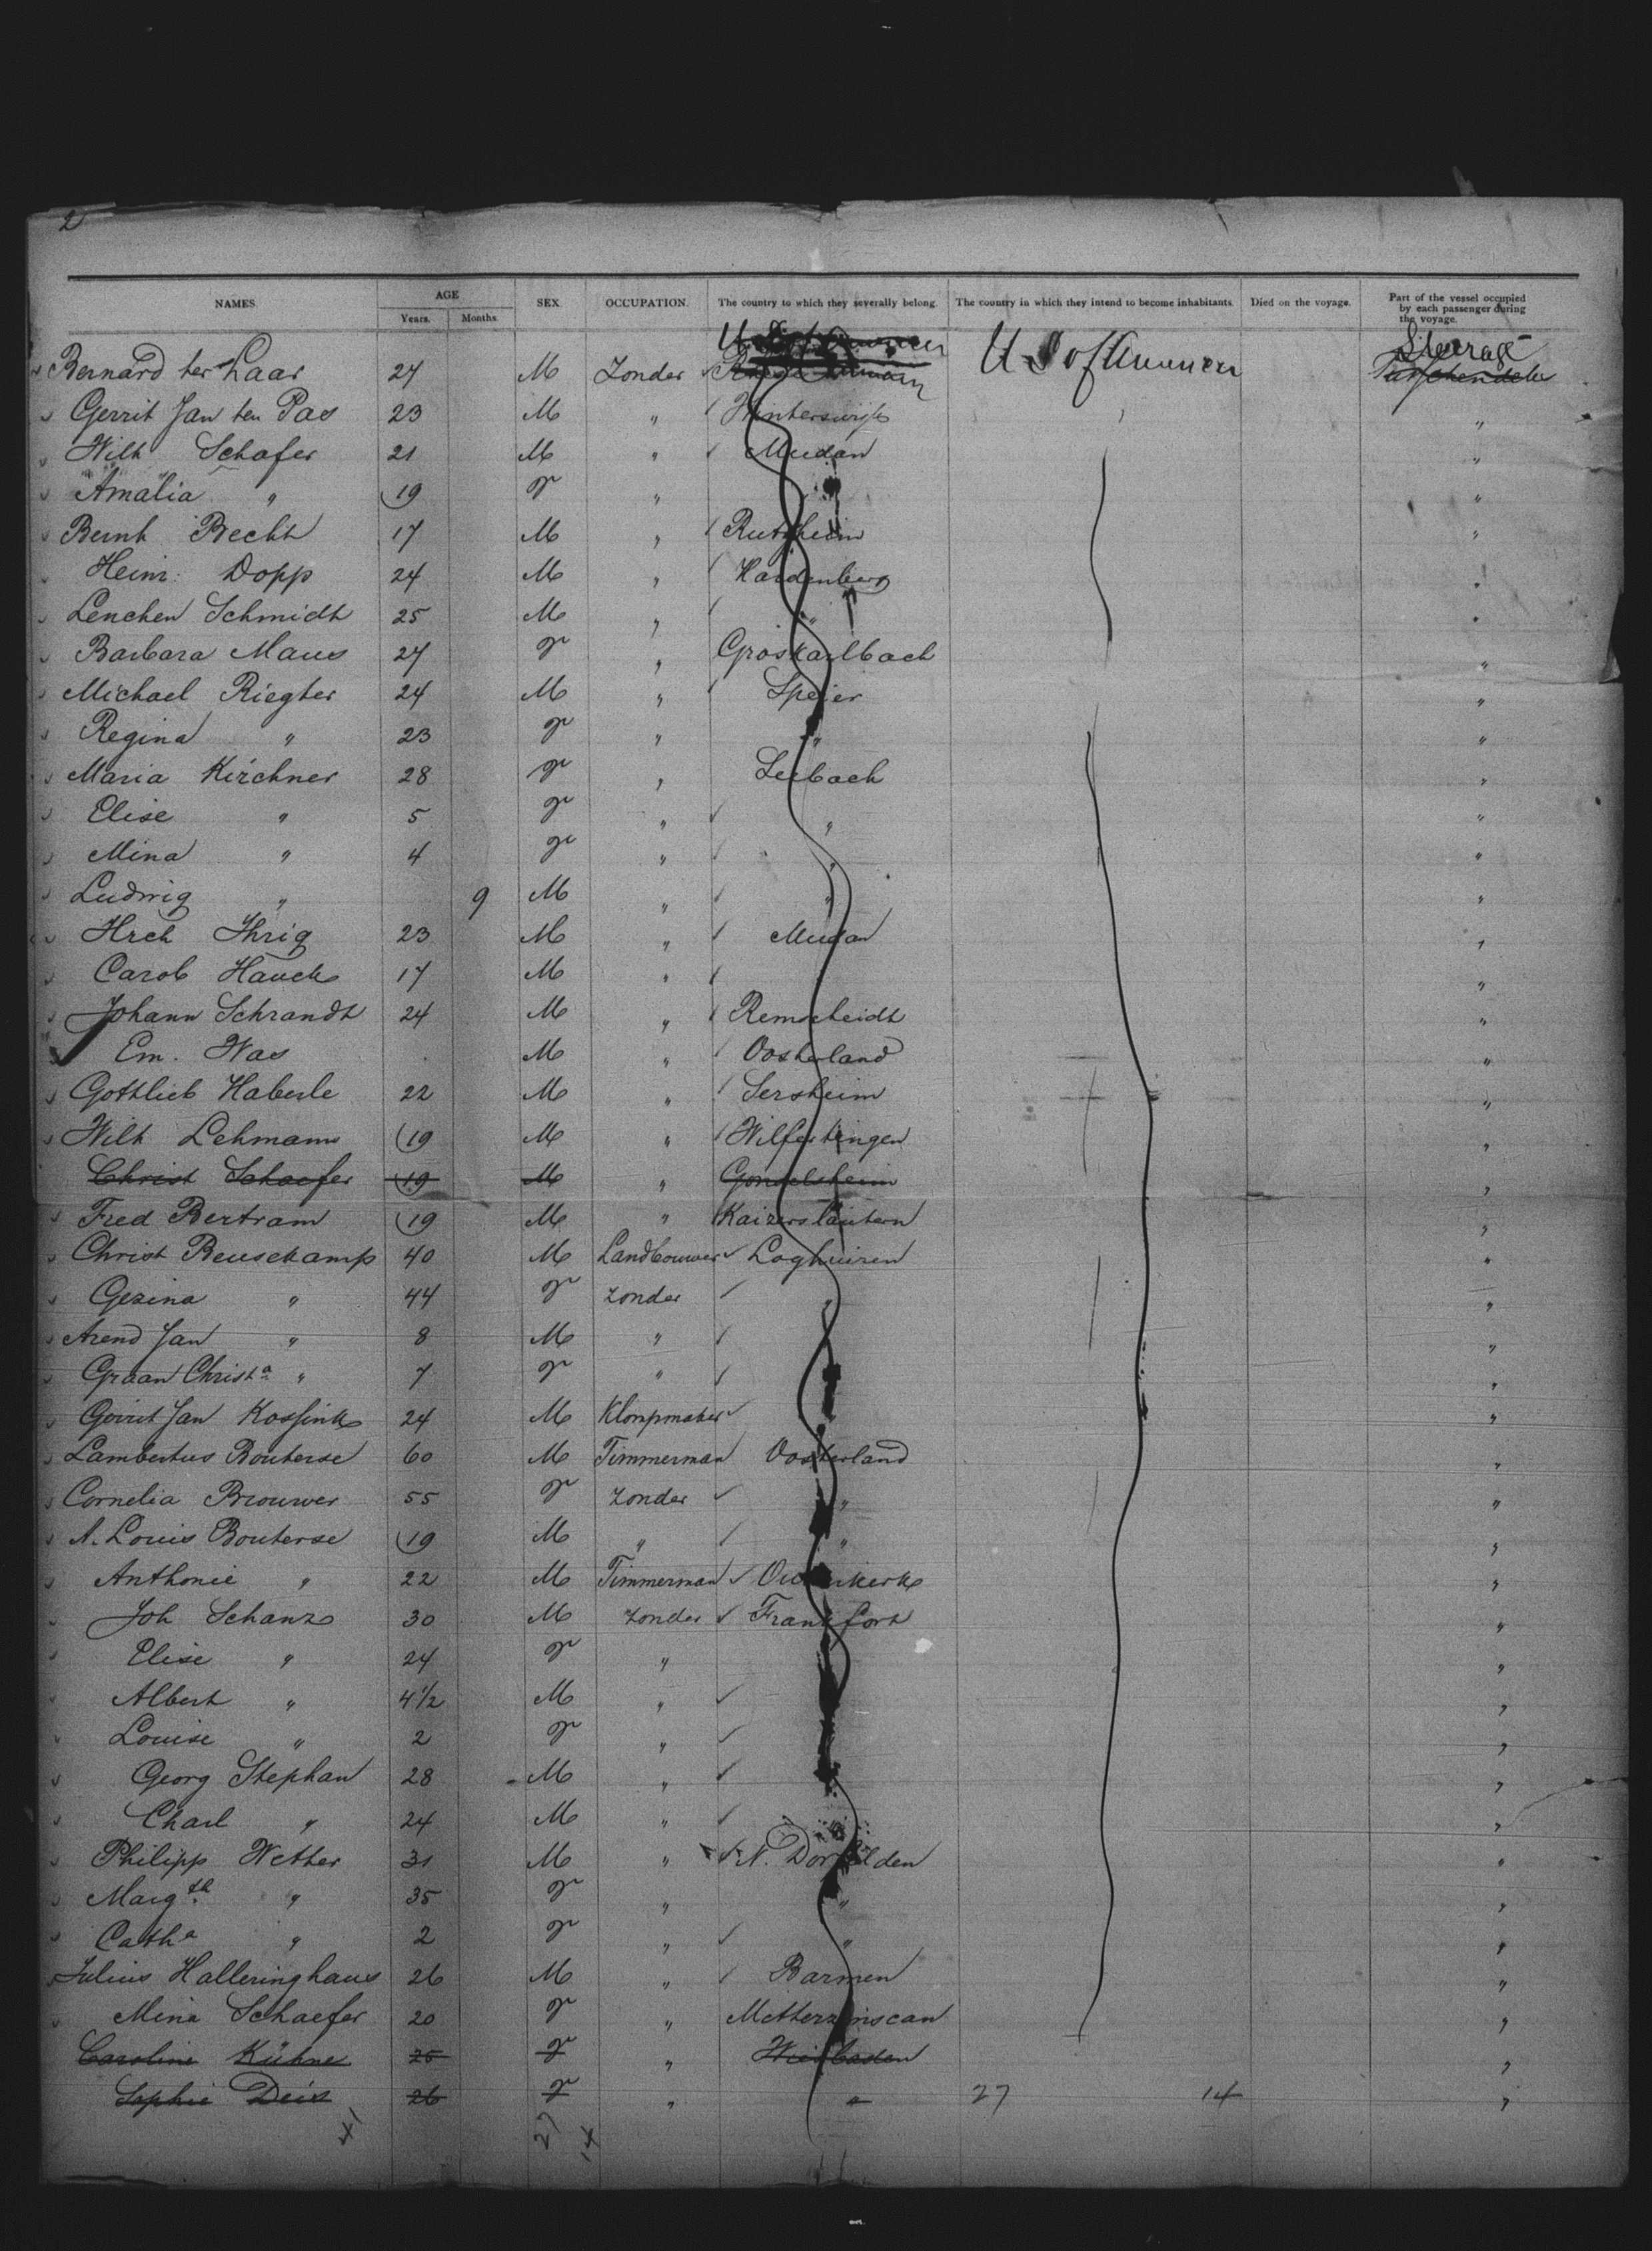 2
NAMES. AGE SEX. OCCUPATION. The country to which they severally belong. The country in which they intend to become inhabitants. Died on the voyage. Part of the vessel occupied by each passenger during the voyage.
Years. Months.
Steerage
Bernard ter Laar 27 M Zonder U S of America Tusschendeks
Gerrit Jan ten Pas 23 M " Winterswijk "
Wilh Schafer 21 M " Mudan "
Amalia " 19 F " "
Bernh Becht 17 M " Rutsheim "
Heinr. Dopp 24 M " Hardenberg "
Lenchen Schmidt 25 M " " "
Barbara Maus 27 F " Groskarlbach "
Michael Riegter 24 M " Speier "
Regina " 23 F " " "
Maria Kirchner 28 F " Leebach "
Elise " 5 F " " "
Mina " 4 F " " "
Ludwig " 9 M " " "
Hrch Ihrig 23 M " Mudan "
Carob Hauck 17 M " "
Johann Schrandt 24 M " Remscheidt "
Em. Was M " Oosterland "
Gottlieb Haberle 22 M " Sersheim "
Wilh Lehmann 19 M " Wilferdingen "
Christ Schaefer 19 M " Gondelsheim "
Fred Bertram 19 M " Kaizerslautern "
Christ Beusekamp 40 M Landbouwer Loghuizen "
Gezina " 44 F zonder " "
Arend Jan " 8 M " "
Graan Christa " 7 F " "
Gerrit Jan Kossink 24 M Klompmaker "
Lambertus Bouterse 60 M Timmerman Oosterland "
Cornelia Brouwer 55 F zonder " "
A. Louis Bouterse 19 M " " "
Anthonie " 22 M Timmerman Ouwerkerk "
Joh Schanz 30 M zonder Frankfort "
Elise " 24 F " "
Albert " 4 1/2 M " "
Louise " 2 F " "
Georg Stephan 28 M " "
Charl " 24 M " "
Philipp Wether 31 M " N. Dorfelden "
Margth " 35 F " " "
Catha " 2 F " " "
Julius Halleringhaus 26 M " Barmen "
Mina Schaefer 20 F " "
Caroline Kühne 25 F " Wiesbaden "
Sophie Deis 26 F " " 27 14 "
41 27 14